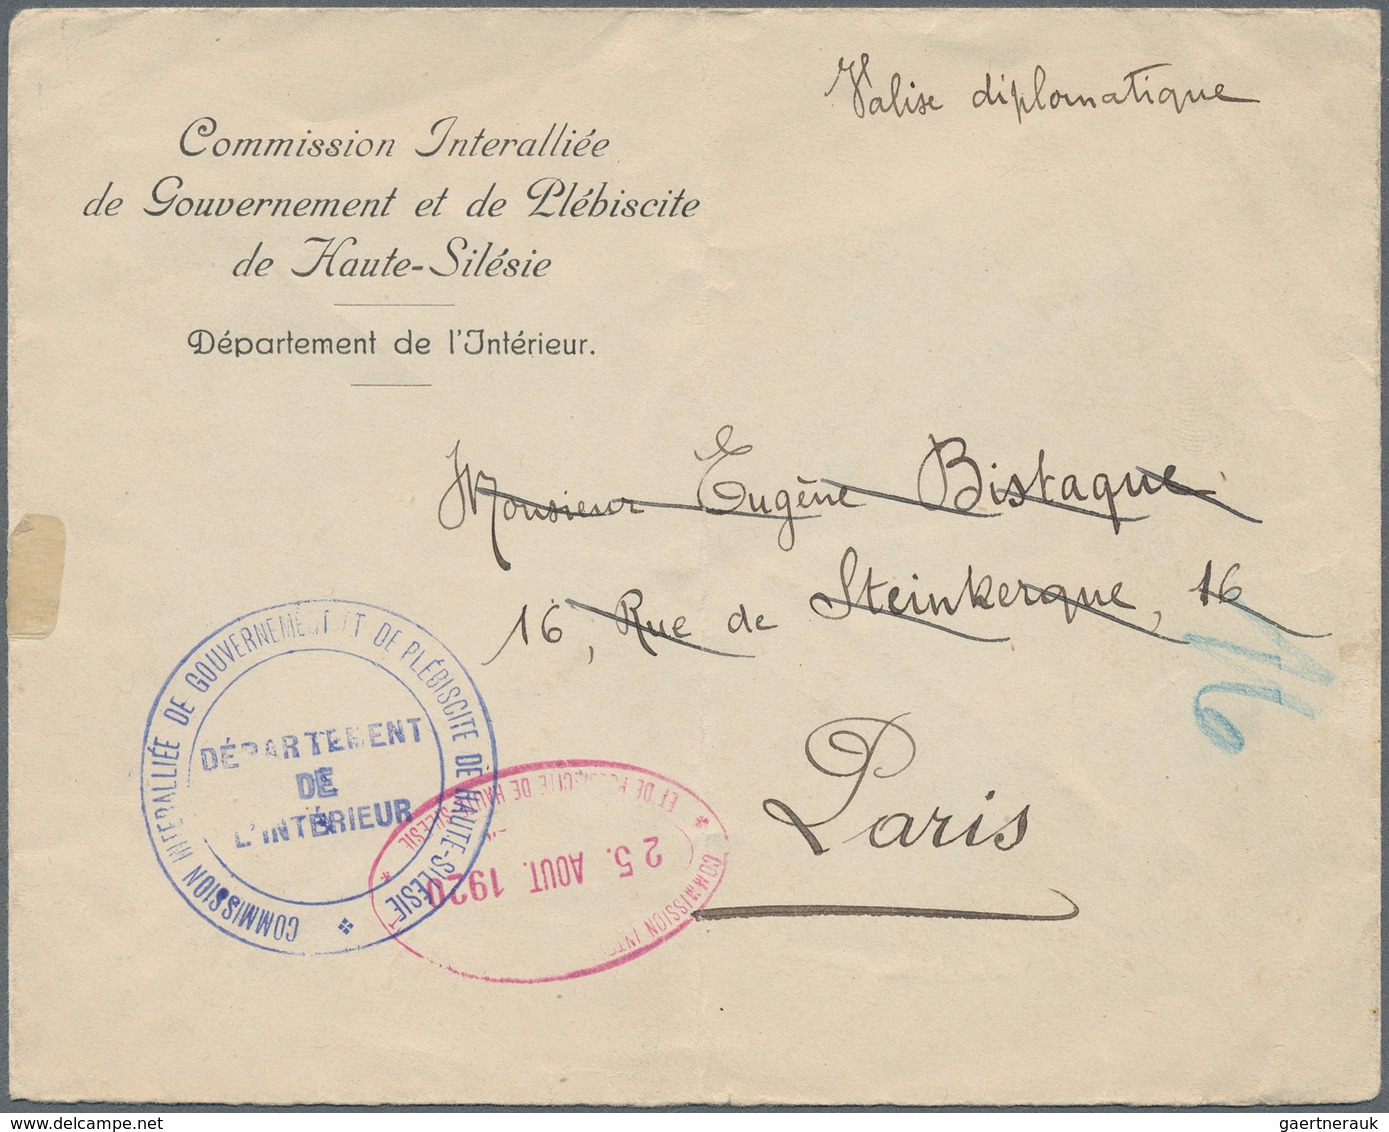 Valise diplomatique
Commission Interalliée
de Gouvernement et de Plébiscite
de Haute-Silésie
Département de l'Intérieur.
Monsieur Eugène Bistaque
16, Rue de Steinkerque, 16
Paris
COMMISSION INTERALLIÉE DE GOUVERNEMENT ET DE PLÉBISCITE DE HAUTE-SILÉSIE
DÉPARTEMENT
DE
L'INTÉRIEUR
COMMISSION INTE
25. AOUT. 1920
ET DE PLÉBISCITE DE HAUTE-SILÉSIE
gaertnerauk
delcampe.net